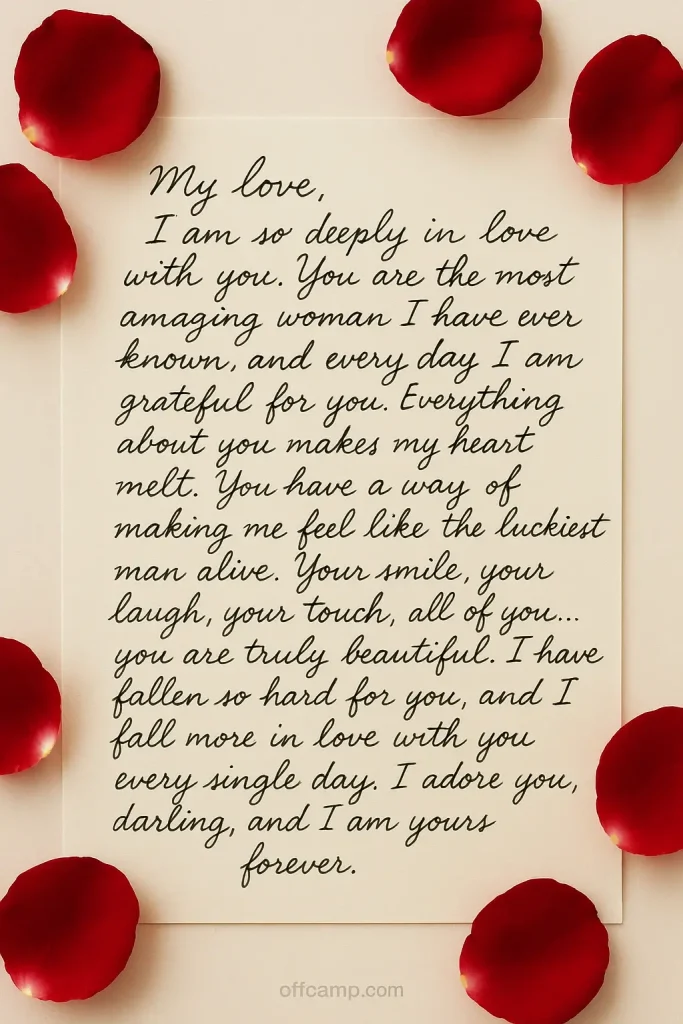 My love,
I am so deeply in love
with you. You are the most
amazing woman I have ever
known, and every day I am
grateful for you. Everything
about you makes my heart
melt. You have a way of
making me feel like the luckiest
man alive. Your smile, your
laugh, your touch, all of you...
you are truly beautiful. I have
fallen so hard for you, and I
fall more in love with you
every single day. I adore you,
darling, and I am yours
forever.
offcamp.com